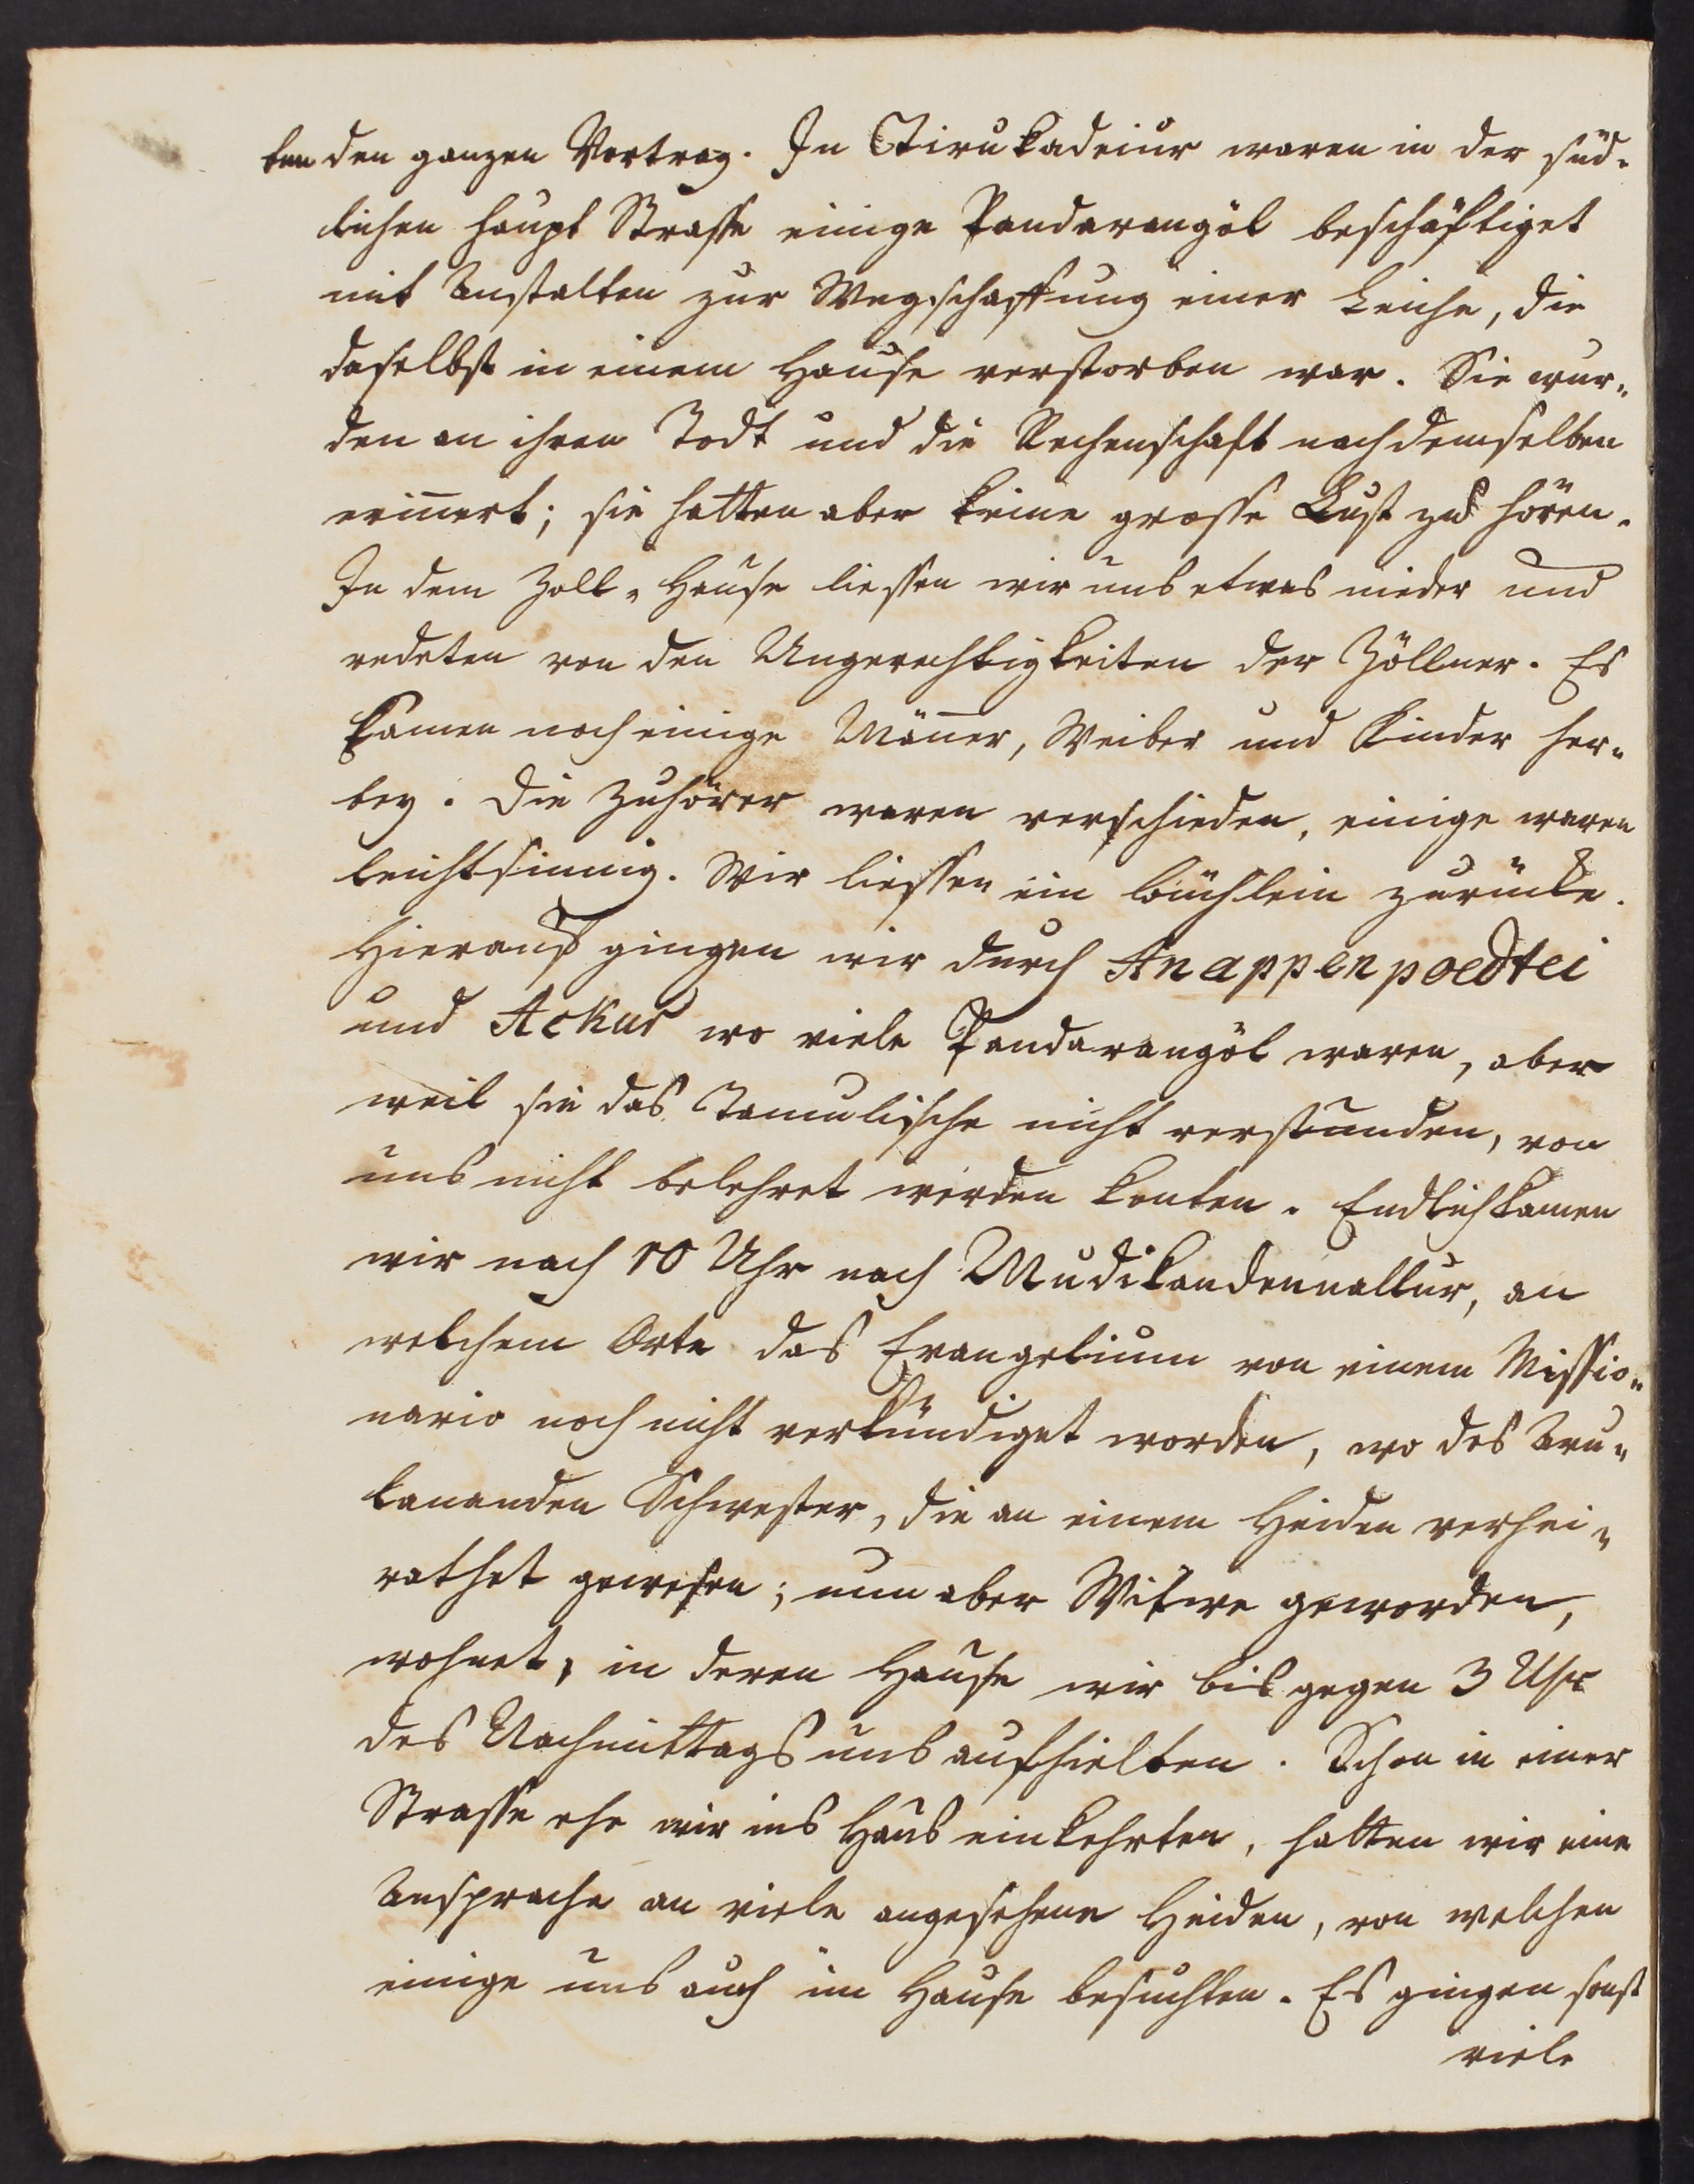 ben den ganzen Vortrag. In Tirukadeiur waren in der süd-
lichen haupt Strasse einige Pandarangöl beschäftiget
mit Anstalten zur Wegschaffung einer Leiche, die
daselbst in einem Hause verstorben war. Sie wur-
den an ihren Todt und die Rechenschaft nach demselben
erin̅ert; sie hatten aber keine grosse Lust zu hören.
In dem Zoll-Hause liessen wir uns etwas nieder und
redeten von den Ungerechtigkeiten der Zöllner. Es
kamen noch einige Män̅er, Weiber und Kinder her-
bey. Die Zuhörer waren verschieden, einige waren
leichtsinnig. Wir liessen ein büchlein zurücke.
Hierauf gingen wir durch Anappenpoedtei
und Ackur wo viele Pandarangöl waren, aber
weil sie das Tamulische nicht verstunden, von
uns nicht belehret werden konten. Endlich kamen
wir nach 10 Uhr nach Mudikandenallur, an
welchem Orte das Evangelium von einem Missio-
nario noch nicht verkündiget worden, wo des Aru-
lananden Schwester, die an einem Heiden verhei-
rathet gewesen; nun aber Witwe geworden,
wohnet, in deren Hause wir bis gegen 3 Uhr
des Nachmittags uns aufhielten. Schon in einer
Strasse ehe wir ins Haus einkehrten, hatten wir eine
Ansprache an viele angesehene Heiden, von welchen
einige uns auch im Hause besuchten. Es gingen sonst
viele